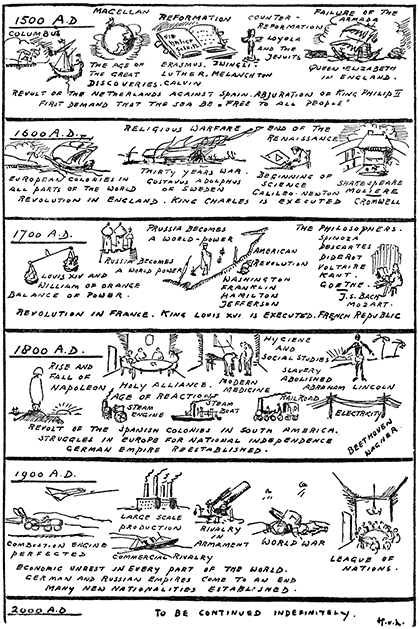 1500 A.D
COLUMBUS
MAGELLAN
THE AGE OF
THE GREAT
DISCOVERIES.
REFORMATION
ERASMUS. ZWINGLI-
LUTHER, MELANCHTON
CALVIN
COUNTER-
REFORMATION
LOYOLA
AND THE
JESUITS
FAILURE OF THE
ARMADA
QUEEN ELIZABETH
IN ENGLAND.
REVOLT OF THE NETHERLANDS AGAINST SPAIN. ABJURATION OF KING PHILIP II
FIRST DEMAND THAT THE SEA BE "FREE TO ALL PEOPLE"
1600 A.D.
EUROPEAN COLONIES IN
ALL PARTS OF THE WORLD
RELIGIOUS WARFARE
THIRTY YEARS WAR.
GUSTAVUS ADOLPHUS
OF SWEDEN
END OF THE
RENAISSANCE
BEGINNING OF
SCIENCE
GALILEO-NEWTON
SHAKESPEARE
MOLIERE
CROMWELL
REVOLUTION IN ENGLAND. KING CHARLES IS EXECUTED
1700 A.D.
LOUIS XIV AND
WILLIAM OF ORANGE
BALANCE OF POWER.
RUSSIA BECOMES
A WORLD POWER
PRUSSIA BECOMES
A WORLD-POWER
AMERICAN
REVOLUTION
WASHINGTON
FRANKLIN
HAMILTON
JEFFERSON
THE PHILOSOPHERS.
SPINOZA
DESCARTES
DIDEROT
VOLTAIRE
KANT.
GOETHE.
J.S. BACH
MOZART.
REVOLUTION IN FRANCE. KING LOUIS XVI IS EXECUTED. FRENCH REPUBLIC
1800 A.D.
RISE AND
FALL OF
NAPOLEON
HOLY ALLIANCE.
AGE OF REACTION
MODERN
MEDICINE
HYGIENE
AND
SOCIAL STUDIES
SLAVERY
ABOLISHED
ABRAHAM LINCOLN
STEAM
ENGINE
STEAM
BOAT
RAILROAD
ELECTRICITY
REVOLT OF THE SPANISH COLONIES IN SOUTH AMERICA.
STRUGGLES IN EUROPE FOR NATIONAL INDEPENDENCE
GERMAN EMPIRE REESTABLISHED.
BEETHOVEN
WAGNER.
1900 A.D.
COMBUSTION ENGINE
PERFECTED
LARGE SCALE
PRODUCTION
COMMERCIAL RIVALRY
RIVALRY
IN
ARMAMENT
WORLD WAR
LEAGUE OF
NATIONS.
ECONOMIC UNREST IN EVERY PART OF THE WORLD.
GERMAN AND RUSSIAN EMPIRES COME TO AN END
MANY NEW NATIONALITIES ESTABLISHED.
2000 A.D
TO BE CONTINUED INDEFINITELY.
H.v.L.